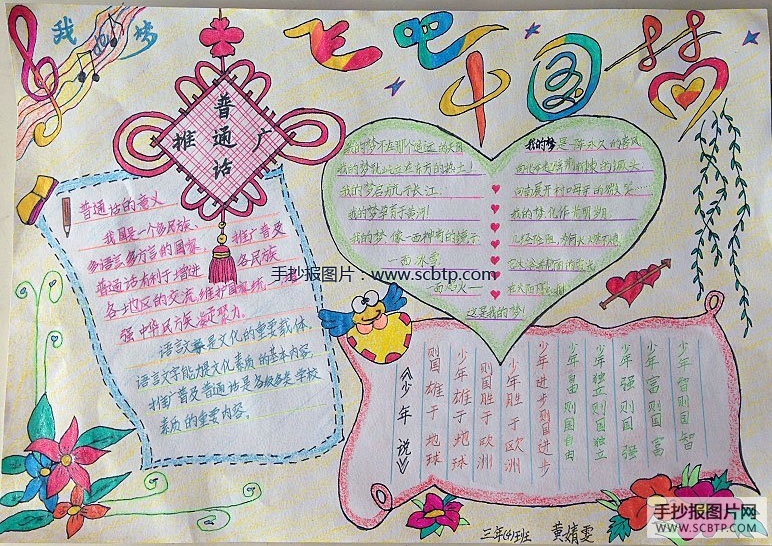 我的梦
飞吧中国梦
普通话
推广
普通话的意义
我国是一个多民族、
多语言多方言的国家,推广普及
普通话有利于增进各民族
各地区的交流,维护国家统一,
强中华民族凝聚力。
语言文字是文化的重要载体,
语言文字能力是文化素质的基本内容,
推广普及普通话是各级各类学校
素质的重要内容。
手抄报图片:www.scbtp.com
我的梦不在那个遥远
我的梦就
我的梦启航于长江,
我的梦孕育于黄河!
我的梦像一面神奇的镜子
一面冰雪
一面烈火
我的梦是一条永久的
我的梦化作
这是我的梦!
少年智则国智
少年富则国富
少年强则国强
少年独立则国独立
少年自由则国自由
少年进步则国进步
少年胜于欧洲
则国胜于欧洲
少年雄于地球
则国雄于地球
《少年说》
三年(4)班 黄婧雯
手抄报图片网
WWW.SCBTP.COM